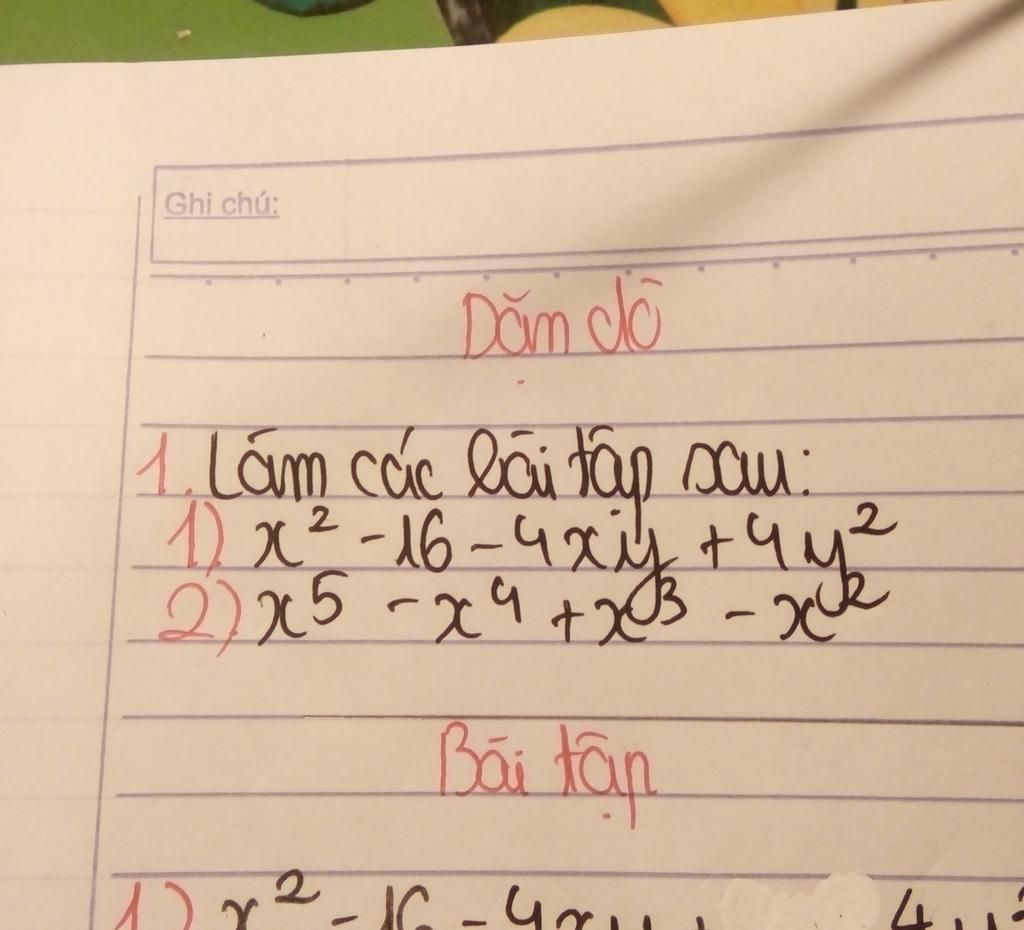 Ghi chú:
Dặn dò
1. Làm các bài tập sau:
1) x² - 16 - 4xy + 4y²
2) x⁵ - x⁴ + x³ - x²
Bài tập
1) x² - 16 - 4xy + 4y²